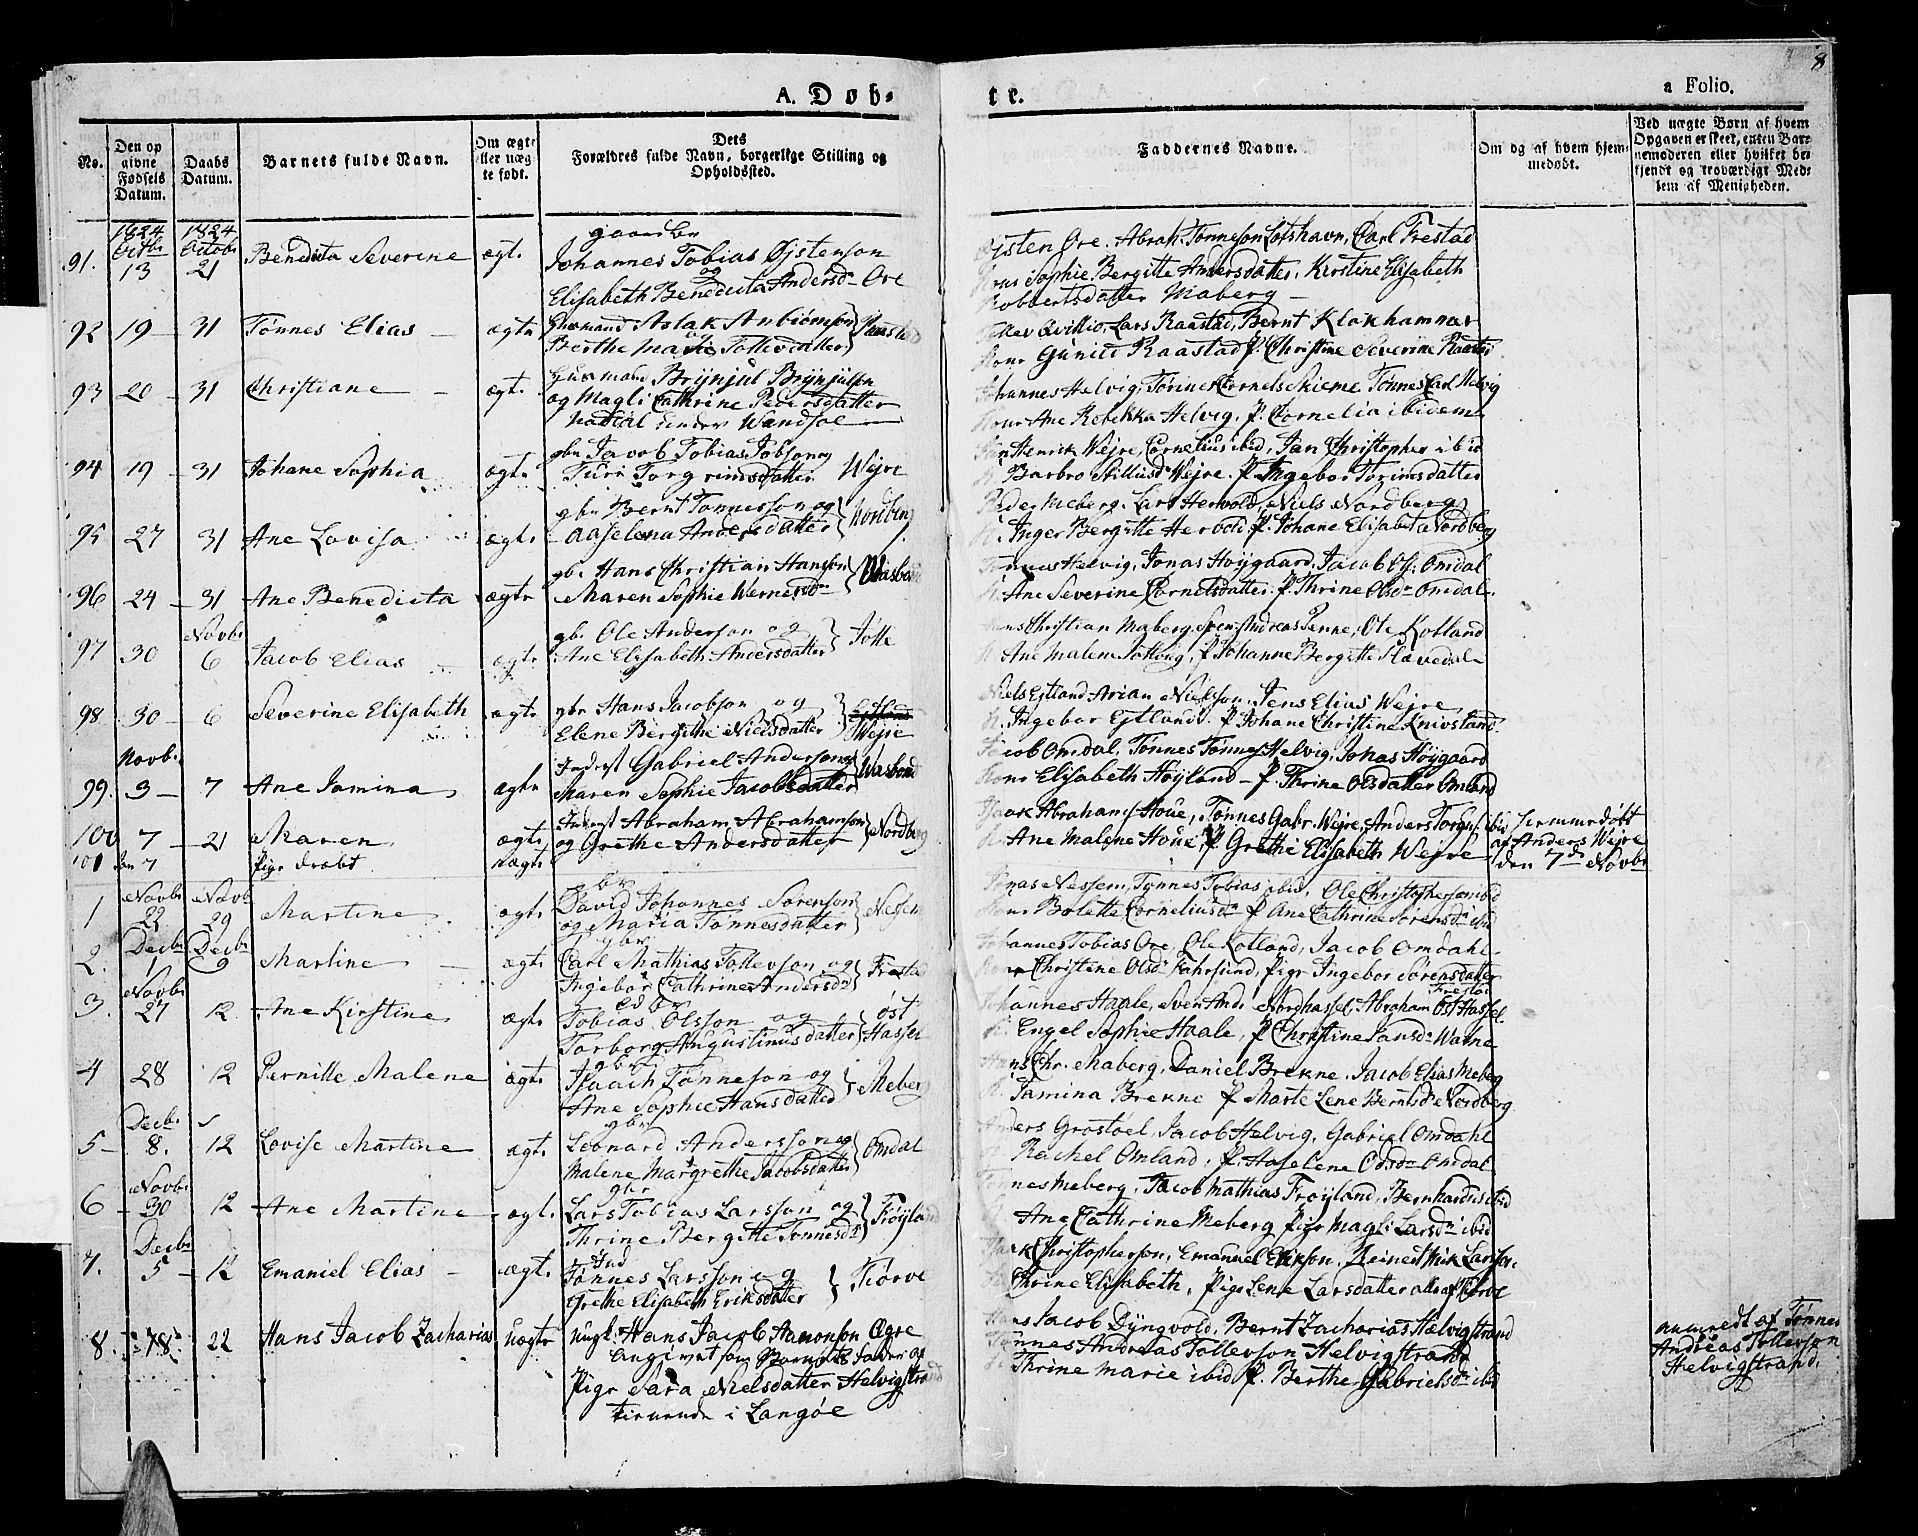 8
A. Døb-
te.
a Folio.
No.
Den op
givne
Fødsels
Datum.
Daabs
Datum.
Barnets fulde Navn.
Om ægte
eller uæg
te født.
Dets
Forældres fulde Navn, borgerlige Stilling og
Opholdssted.
Faddernes Navne.
Om og af hvem hjem-
medøbt.
Ved uægte Børn af hvem
Opgaven er skeet, enten Bar-
nemoderen eller hvilket be-
kjendt og troværdigt Med-
lem af Menigheden.
1824
Octbr
1824
Octobr
91. 13 21 Benedicta Severine ægt.
gaardbr
Johannes Tobias Øjstenson
og
Elisabeth Benedicta Andersd. Ore
Øjsten Ore, Abrah. Tønneson Lotshavn, Carl Frestad
Sophie Bergitte Andersdatter. Kirstine Elisabeth
Robbertsdatter Maberg
92 19 31 Tønnes Elias ægte
Huusmand Aslak Anbiørnson
Berthe Marie Tollevdatter
Raastad
Qvillio, Lars Raastad, Bernt Klokhammer
Gunild Raastad P. Christine Severine Raastad
93 20 31 Christiane ægt.
Huusmand Brynjul Brynjulsen
og Magli Cathrine Pedersdatter
under Wandsøe
Johannes Helvig, Tønnes Cornels Skieme Tønnes Carl Helvig
Kone Ane Rebekka Helvig. P. Cornelia ibidem
94 19 31 Johane Sophia ægte
gbr Jacob Tobias Jobson og
Turi Torgrimsdatter Wejre
Jan Henrik Wejre, Cornelius ibid, Jan Christopher ibid
Barbro Wejre. P. Ingebor Torimsdatter
95 27 31 Ane Lovisa ægt.
gbr Bernt Tønnesson og
Aaselena Andersdatter
Nordberg
Peder Meberg. Lars Hervold, Niels Nordberg
Inger Bergitte Hervold P. Johane Elisabet Nordberg
96 24 31 Ane Benedicta ægte
gb. Hans Christian Hanson
Maren Sophie Wernersd.
Wasbond
Tønnes Helvig, Jonas Høygaard. Jacob Ols. Omdal
K. Ane Severine Cornelsdatter. P. Thrine Olsd. Omdal.
Novbr
97 30 6 Jacob Elias ægte
gb. Ole Anderson og
Ane Elisabeth Andersdatter
Jølle
Hans Christian Maberg, Svenstudreas Penne, Ole Kotland
K. Ane Malene P. Johanne Bergitte Slævedal
98. 30 6 Severine Elisabeth ægte
gbr Hans Jacobson og
Elene Bergithe Nielsdatter
Ejtland
Wejre
Niels Ejtland Arian Nielsson, Jens Elias Wejre
K. Ingebor Ejtland. P. Johane Christine Knivsland.
Novb.
99. 3 7 Ane Jamina ægte
Inderst Gabriel Anderson og
Maren Sophie Jacobsdatter
Wasbond
Jacob Omdal, Tønnes Tønnes. Helvig, Jonas Høygaard
Kone Elisabeth Høyland P. Thrine Olsdatter Omland
100 7 21 Maren ægte
Inderst Abraham Abrahamson
og Grethe Andersdatter
Nordberg
Isaak Abrahams. Houe, Tønnes Gabr. Wejre, Anders Torgus. ibid
K. Ane Malene Houe, P. Grethe Elisabeth Wejre
hiemmedøbt
af Anders Wejre
den 7de Novbr
101 den 7 Pige drabt uægte
Novbr Novb
1 22 29 Martine ægt.
gbr
David Johannes Sørenson
og Maria Tønnesdatter
Nessem
Jonas Nessem, Tønnes Tobias ibid, Ole Christopherson ibid
Kone Bolette Corneliusd. P. Ane Cathrine Sørensd. ibid
Decbr Decbr
2. 1 9 Martine ægt.
gbr
Carl Mathias Tollevson og
Ingebor Cathrine Andersd.
Frestad
Johannes Tobias Ore, Ole Kotland, Jacob Omdahl
Kone Christene Olsd. Fahrsund, Pige Ingebor Sørensdatter
Frestad
Novbr
3. 27 12 Ane Kirstine ægt.
Tobias Olsson og
Torborg Augustinusdatter
Øst
Hassel
Johannes Haale, Sven Nordhassel, Abraham Øst Hassel.
K. Engel Sophie Haale, P. Christine Jansd. Walne
4 28 12 Pernille Malene ægt.
gbr
Isaach Tønneson og
Ane Sophie Hansdatter
Meberg
Hans Chr. Maberg, Daniel Brekne. Jacob Elias Meberg
K. Jamina Brekne P. Marte Lene Berntsd. Nordberg
Decbr
5 8. 12 Lovise Martine ægt.
gbr
Leonard Andersson og
Malene Margrethe Jacobsdatter
Omdal
Anders Grostøel, Jacob Helvig, Gabriel Omdahl
Rachel Omland. P. Haselene Odsd. Omdal
Novbr
6 30 12 Ane Martine ægt.
gbr
Lars Tobias Larsson og
Thrine Bergitte Tønnesd.
Frøyland
Tønnes Meberg, Jacob Mathias Frøyland, Bernhardus ibid
K. Ane Cathrine Meberg Pige Magli Larsd. ibid
Decbr
7. 5 12 Emaniel Elias ægt.
Ind
Tønnes Larsson og
Grethe Elisabeth Eriksdatter
Tiørve
Isaak Christopherson, Emanuel Erikson. Reinert Mik Larsson.
Thrine Elisabeth, Pige Lene Larsdatter alle af Tiørve
8. 22 Hans Jacob Zacharias uægte
Ungk. Hans Jacob Aanonson Øgre
angivet som Barnets Fader og
Pige Sara Nielsdatter Helvigstrand
tienende i Langøe
Hans Jacob Dyngvold. Bernt Zacharias Helvigstrand
Tønnes Andreas Tollevson Helvigstrand
Thrine Marie ibid P. Berthe Gabrielsd. ibid
anmeldt af Tønnes
Andreas Tollevson
Helvigstrand.